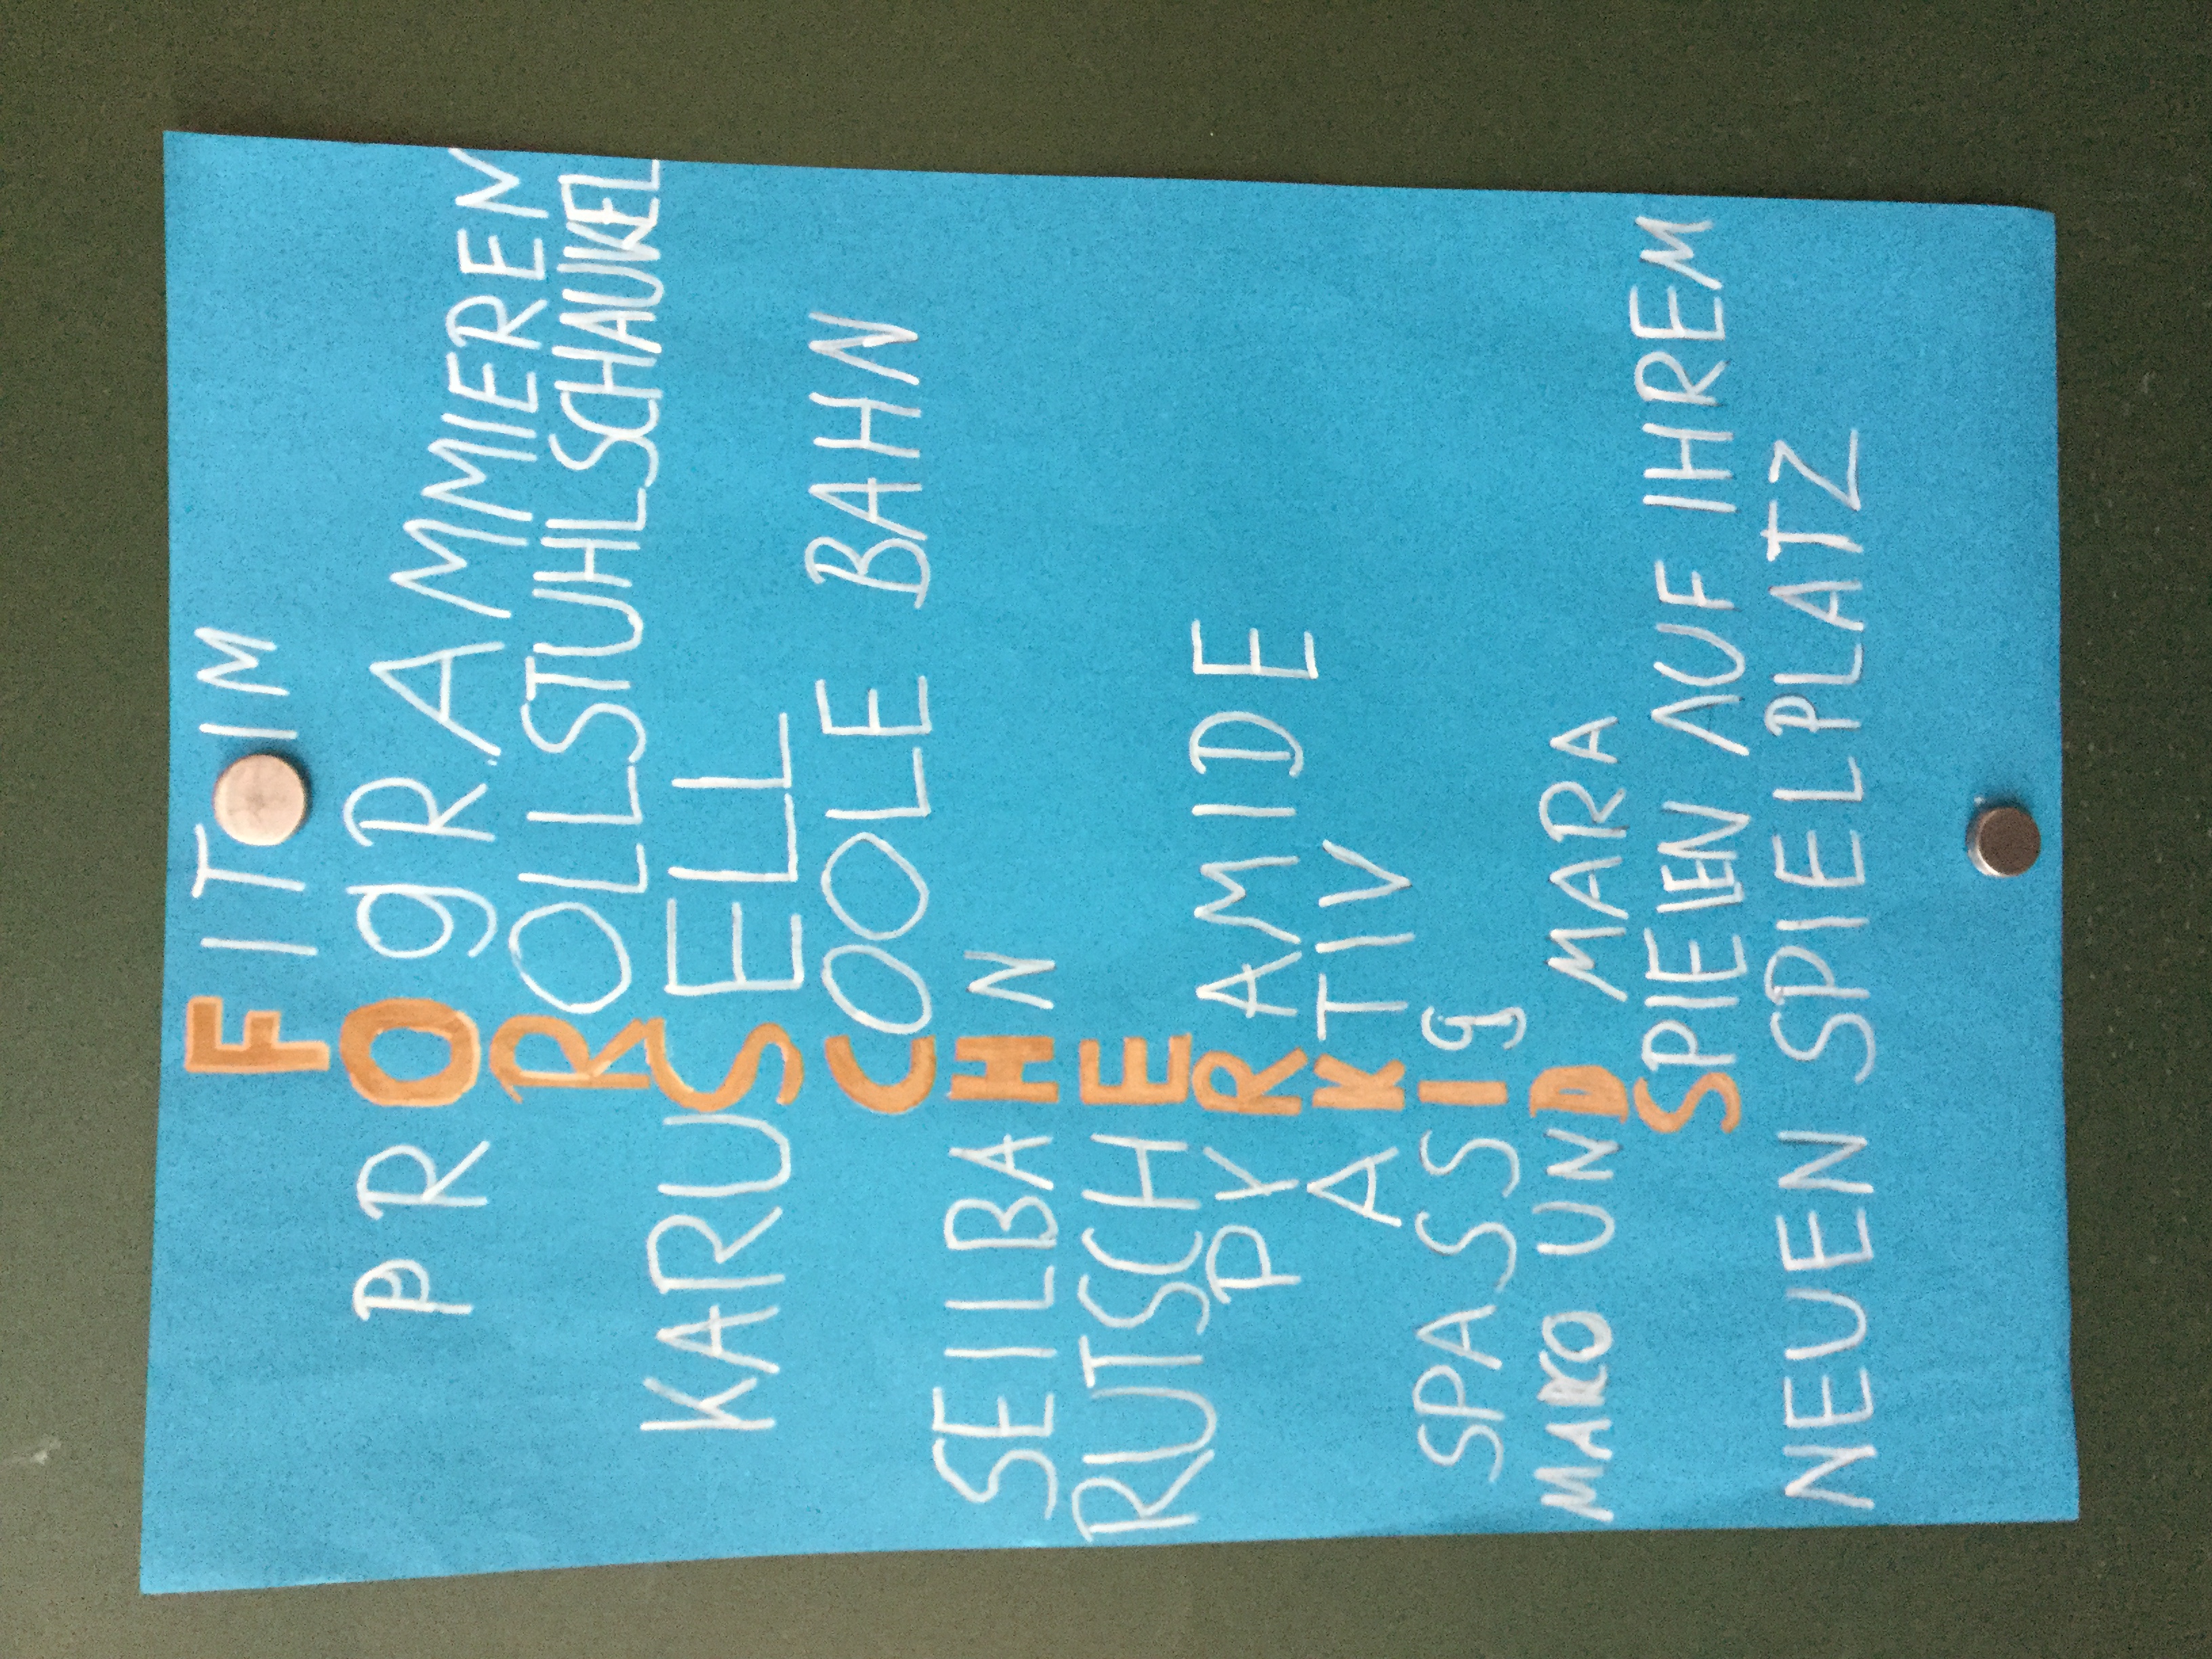 FIT IM
PROgRAMMIEREN
ROLLSTUHLSCHAUKEL
KARUSELL
COOLE BAHN
SEILBAHN
RUTSCHE
PYRAMIDE
AKTIV
SPASSIg
MARCO UND MARA
SPIELEN AUF IHREM
NEUEN SPIELPLATZ